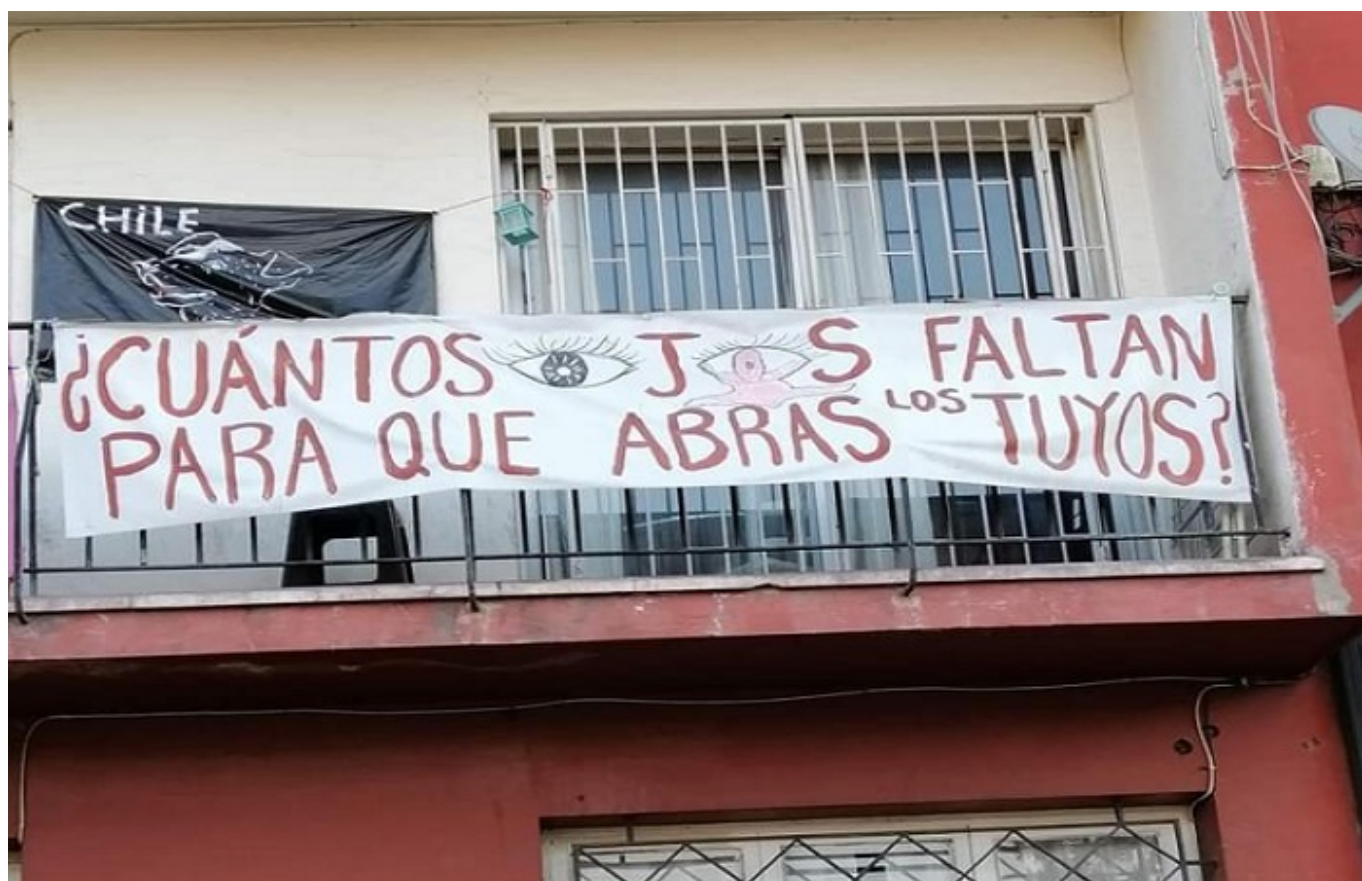 CHILE
¿CUÁNTOS OJOS FALTAN
PARA QUE ABRAS LOS TUYOS?